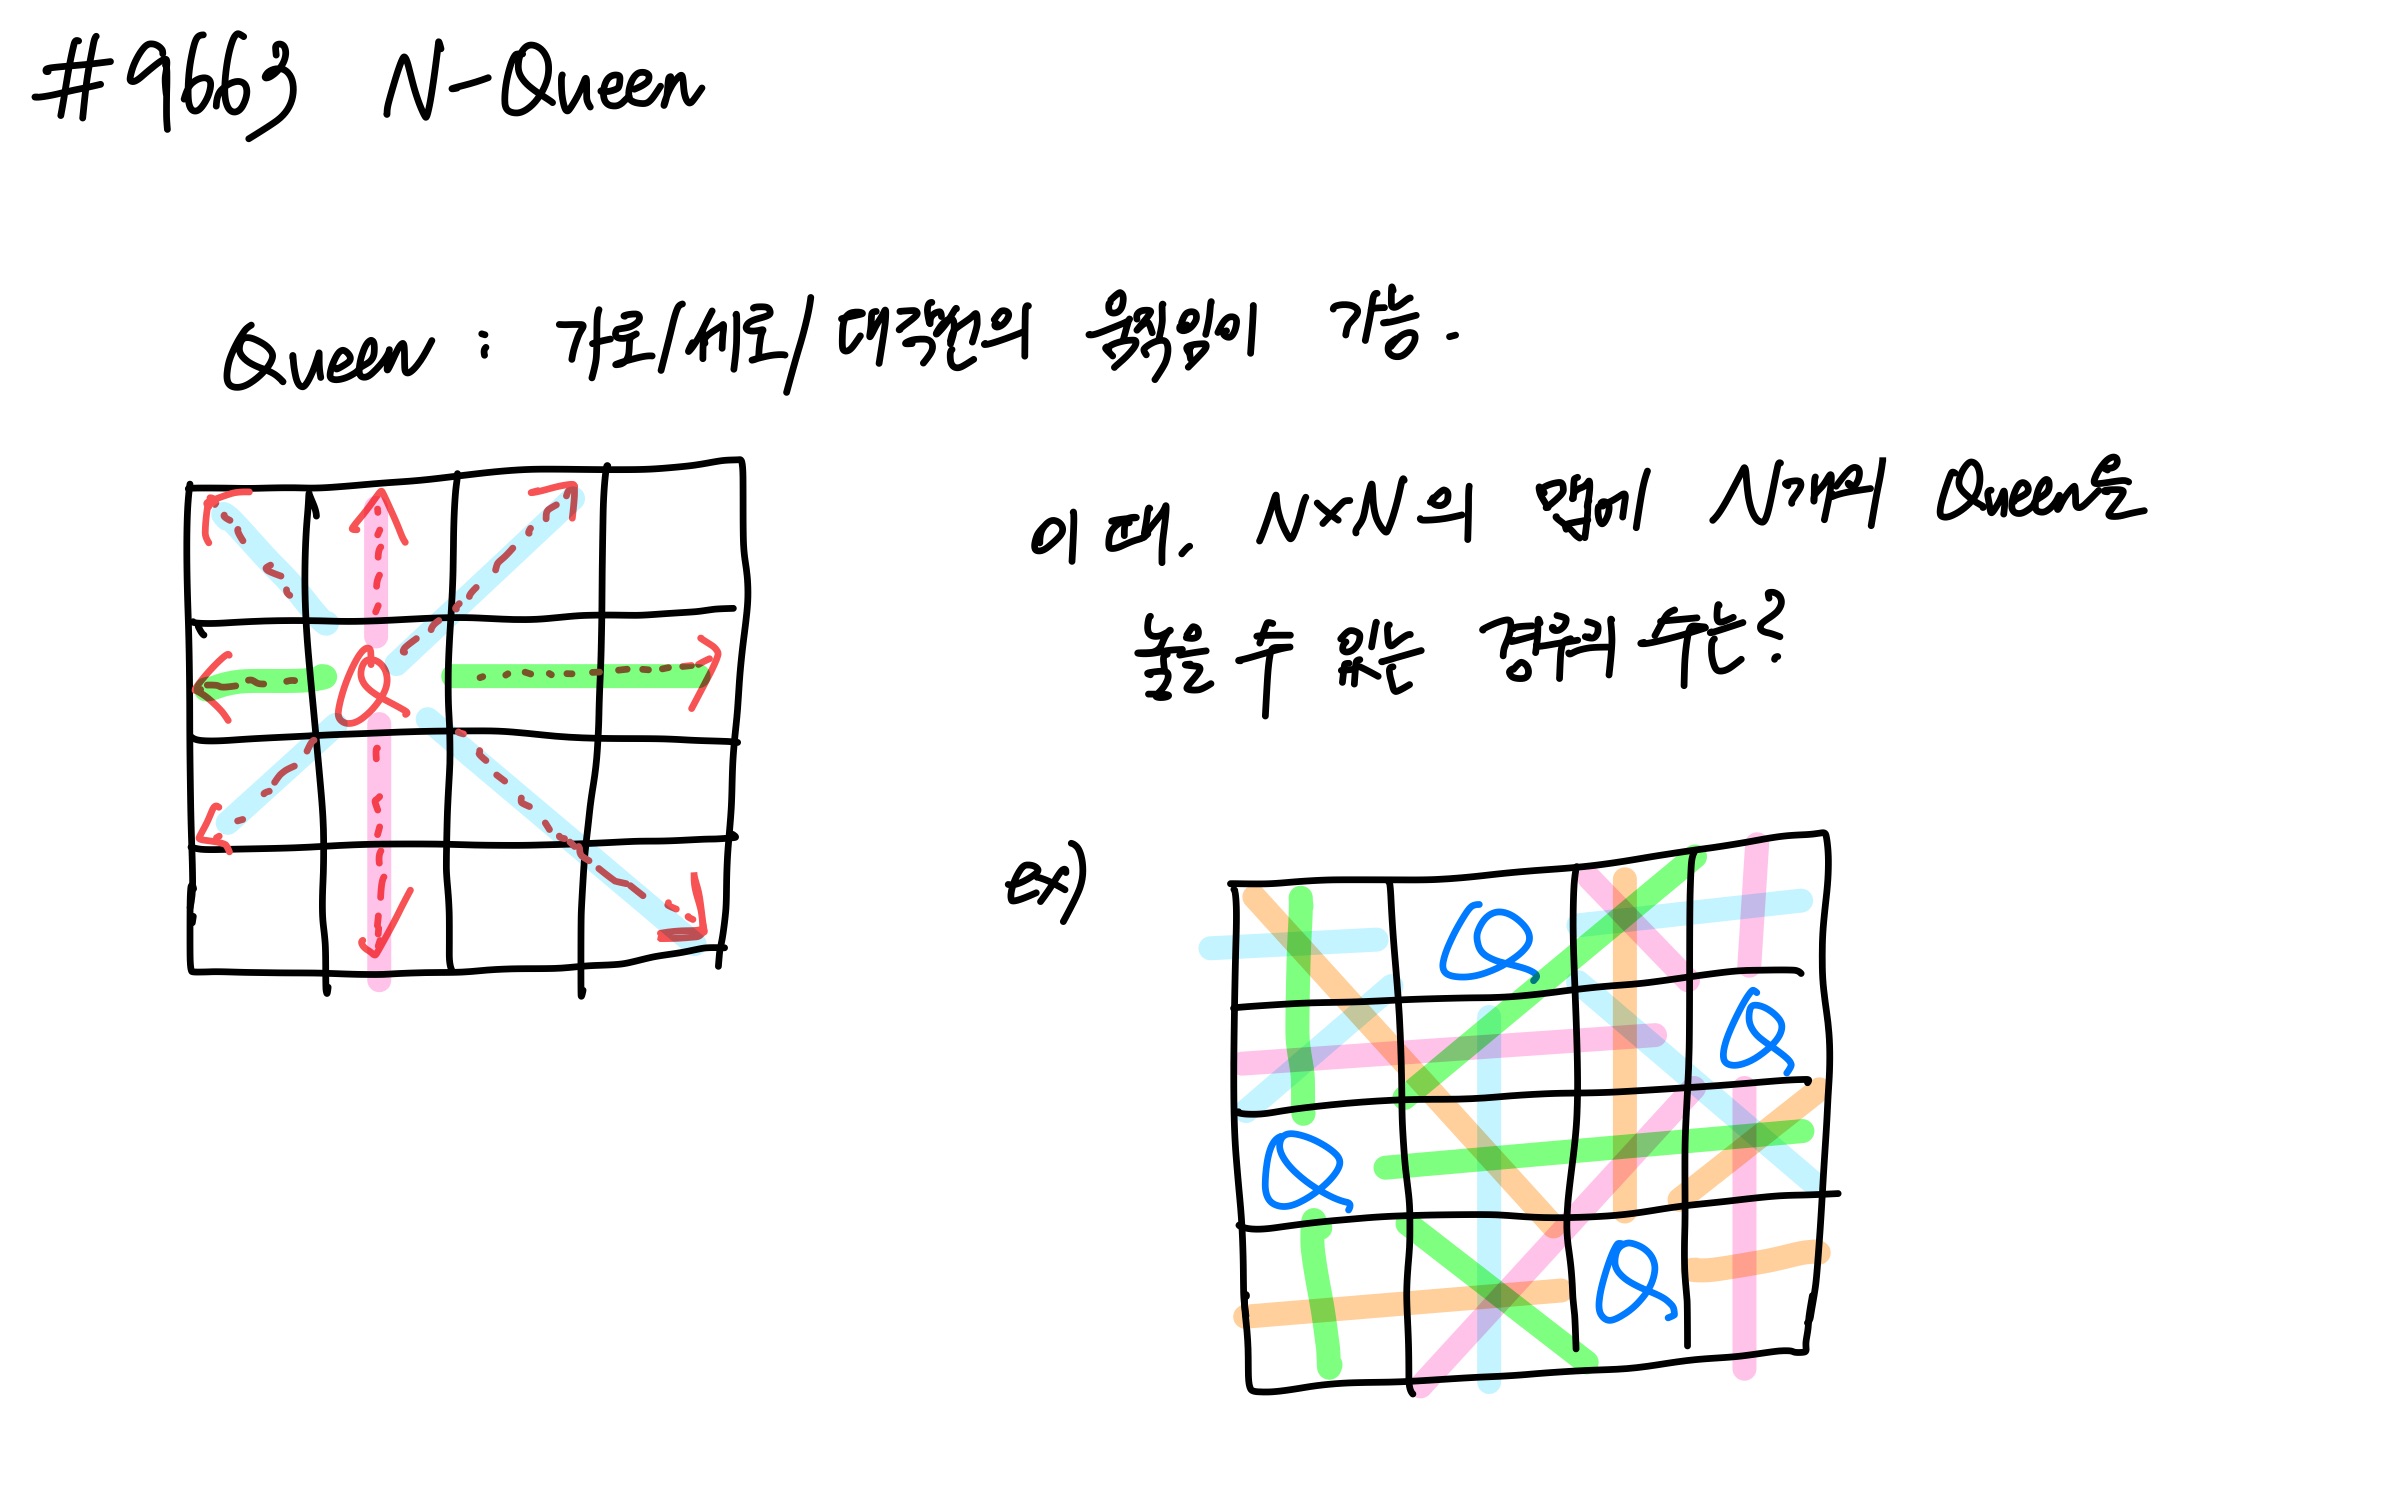 #9663 N-Queen
Queen : 가로/세로/대각선의 움직임이 가능.
이 때, N×N의 판에 N개의 Queen을
놓을 수 있는 경우의 수는?
Q
ex)
Q
Q
Q
Q